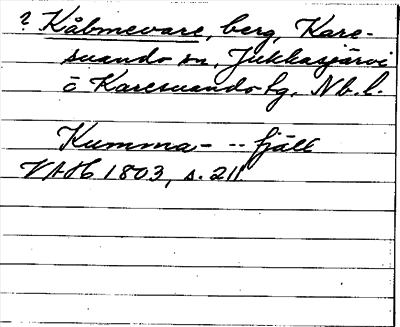 ? Kåbmevare, berg, Kare-
suando sn, Jukkasjärvi
o Karesuando tg, Nb. l.
Kumma- -- fjäll
VAH 1803, s. 211